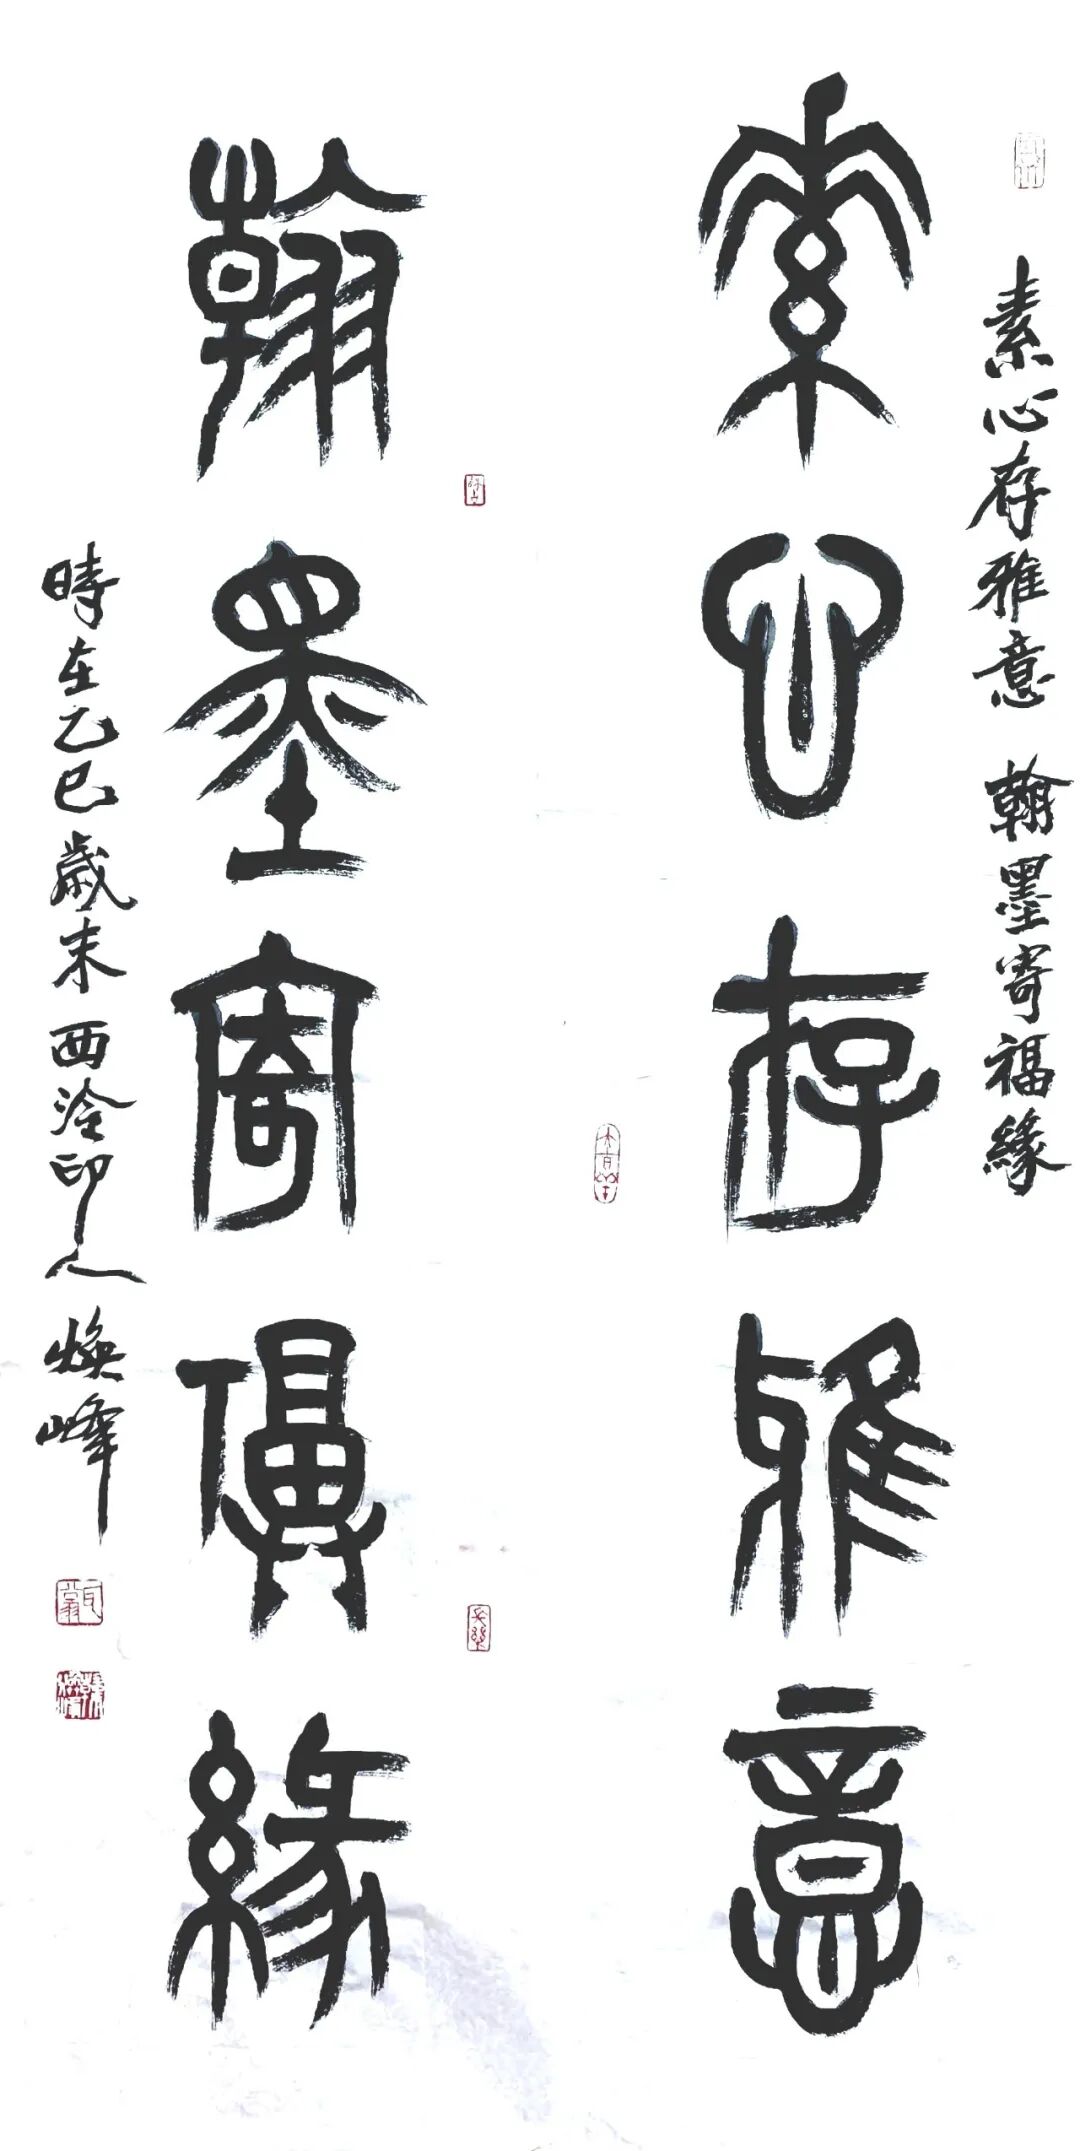 素心存雅意 翰墨寄福緣
素心存雅意
翰墨寄福緣
時在乙巳歲末 西泠印人 煥峰